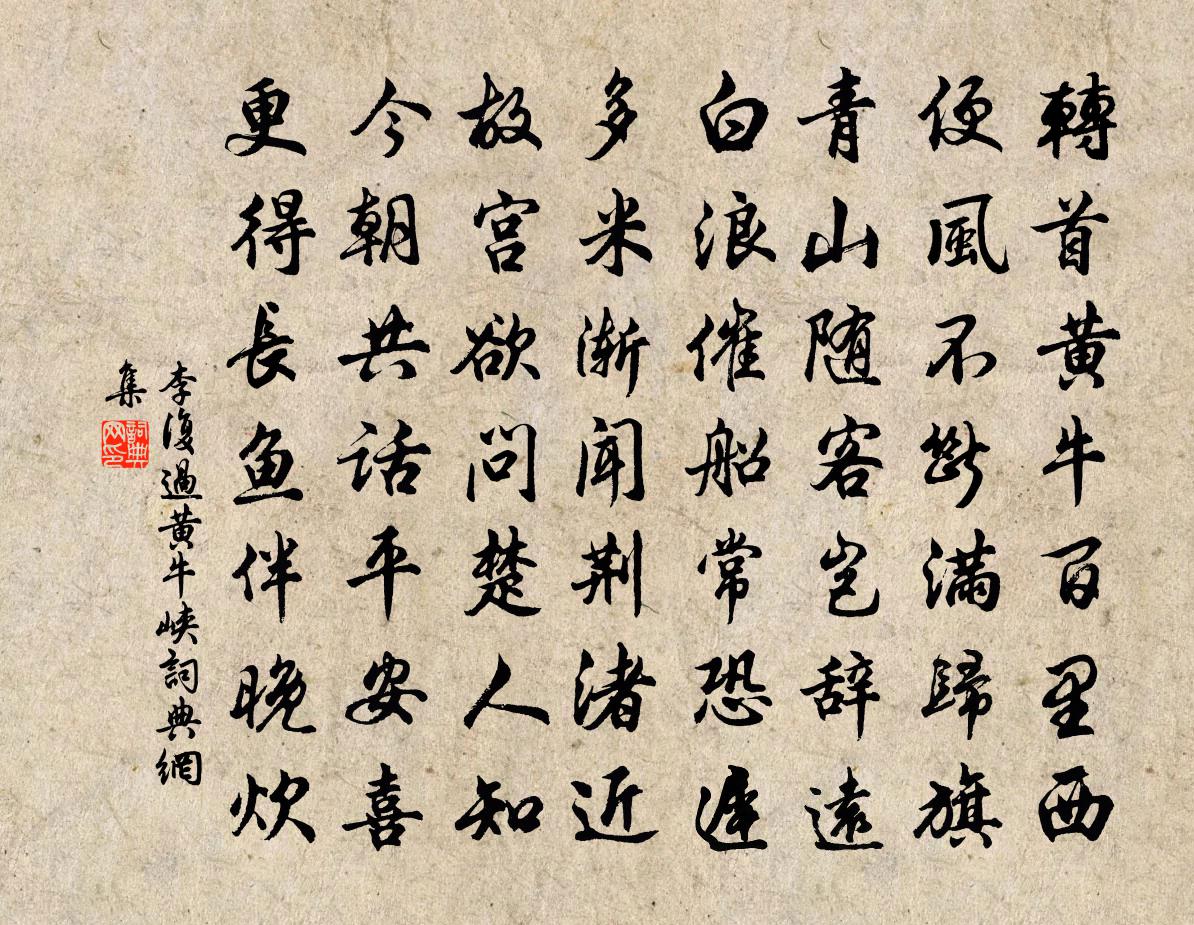 轉首黄牛百里西
便風不斷滿歸旗
青山随客岂辞遠
白浪催船常恐遲
多米渐闻荆渚近
故宫欲问楚人知
今朝共话平安喜
更得長鱼伴晚炊
李復過黄牛峽詞典網
集
詞典网印